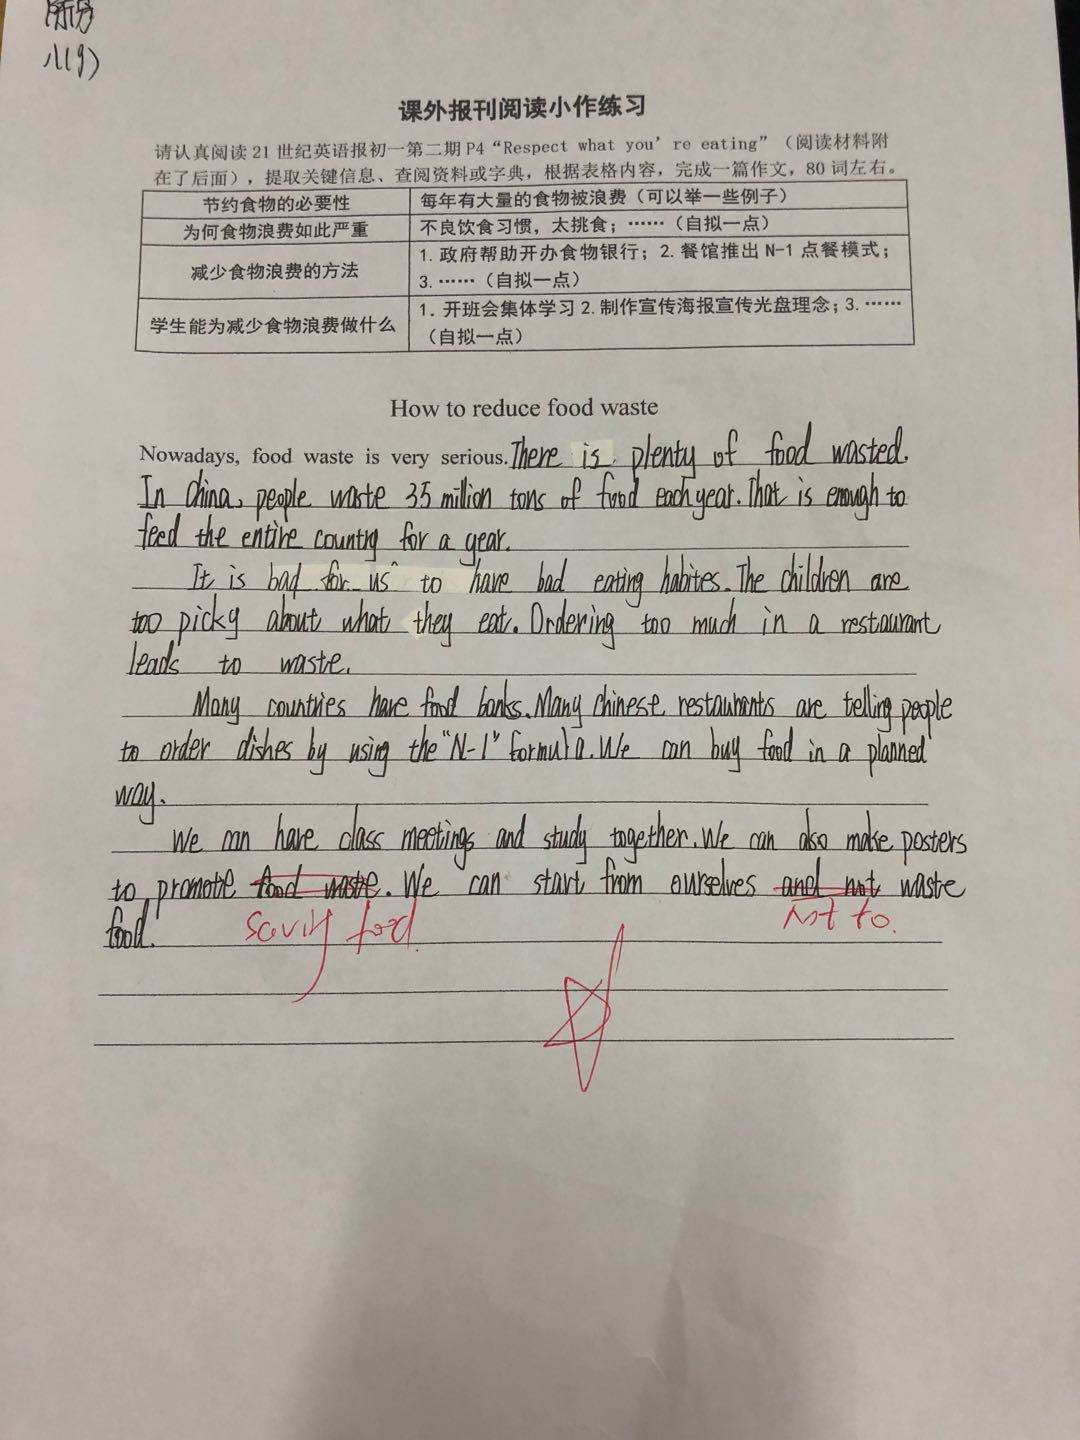 八(9)
课外报刊阅读小作练习
请认真阅读 21 世纪英语报初一第二期 P4 “Respect what you’re eating” （阅读材料附
在了后面），提取关键信息、查阅资料或字典，根据表格内容，完成一篇作文，80 词左右。
节约食物的必要性 每年有大量的食物被浪费（可以举一些例子）
为何食物浪费如此严重 不良饮食习惯，太挑食；……（自拟一点）
减少食物浪费的方法 1. 政府帮助开办食物银行；2. 餐馆推出 N-1 点餐模式；
3. ……（自拟一点）
学生能为减少食物浪费做什么 1. 开班会集体学习 2. 制作宣传海报宣传光盘理念；3. ……
（自拟一点）
How to reduce food waste
Nowadays, food waste is very serious. There is plenty of food wasted.
In China, people waste 35 million tons of food each year. That is enough to
feed the entire country for a year.
It is bad for us to have bad eating habites. The children are
too picky about what they eat. Ordering too much in a restaurant
leads to waste.
Many countries have food banks. Many chinese restaurants are telling people
to order dishes by using the "N-1" formula. We can buy food in a planned
way.
We can have class meetings and study together. We can also make posters
to promote food waste. We can start from ourselves and not waste
food. saving food. not to.